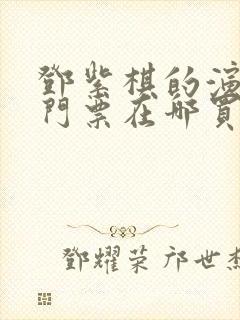 鄧紫棋的演
門票在哪買
鄧耀荣 邝世杰